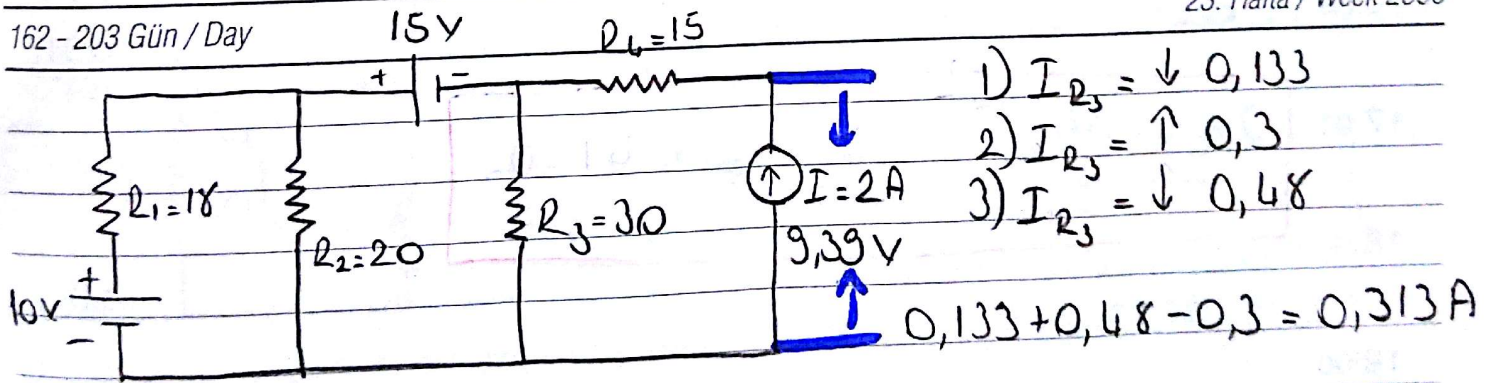 162 - 203 Gün / Day
15V
R4=15
+
-
R1=18
R2=20
R3=30
I=2A
9,39 V
+
10V
-
1) IR3 = ↓ 0,133
2) IR3 = ↑ 0,3
3) IR3 = ↓ 0,48
0,133+0,48-0,3 = 0,313A